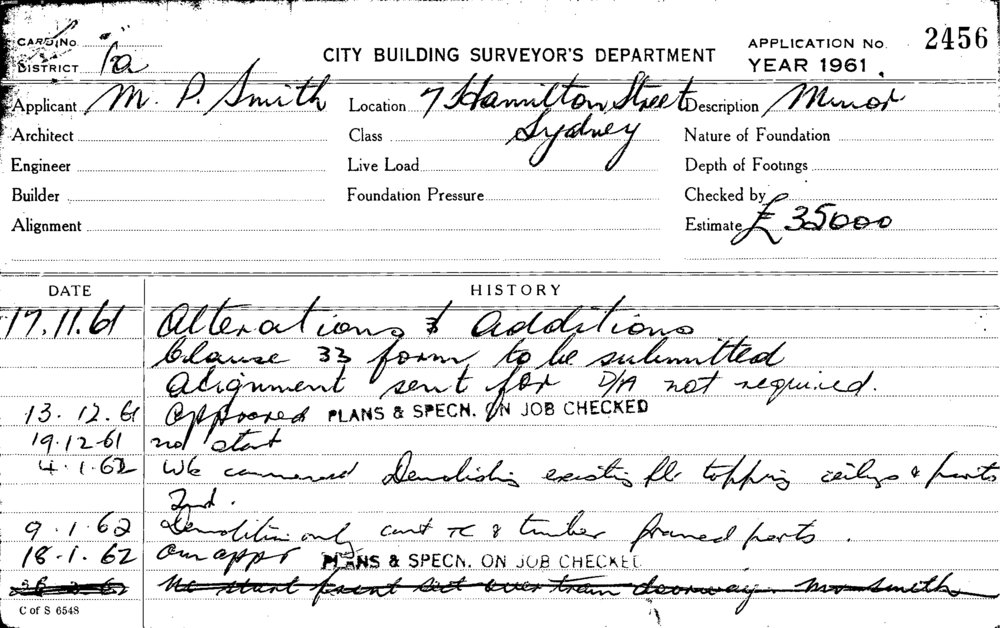 CARD No.
DISTRICT 1a
CITY BUILDING SURVEYOR'S DEPARTMENT
APPLICATION No. 2456
YEAR 1961.
Applicant M. P. Smith Location 7 Hamilton Street Description Minor
Architect Class Sydney Nature of Foundation
Engineer Live Load Depth of Footings
Builder Foundation Pressure Checked by
Alignment Estimate £35000
DATE HISTORY
17.11.61 Alterations & additions
Clause 33 form to be submitted
Alignment sent for D/A not required.
13.12.61 Approved PLANS & SPECN. ON JOB CHECKED
19.12.61 no start
4.1.62 Wk commenced Demolishing existing fl topping ceilings & parts
2nd.
9.1.62 Demolition only & timber framed parts.
18.1.62 PLANS & SPECN. ON JOB CHECKED
No start front over doorway Mr Smith
C of S 6548